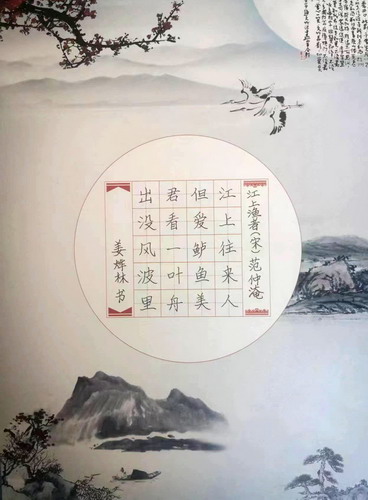 江上渔者(宋)范仲淹
江上往来人
但爱鲈鱼美
君看一叶舟
出没风波里
姜烨林书